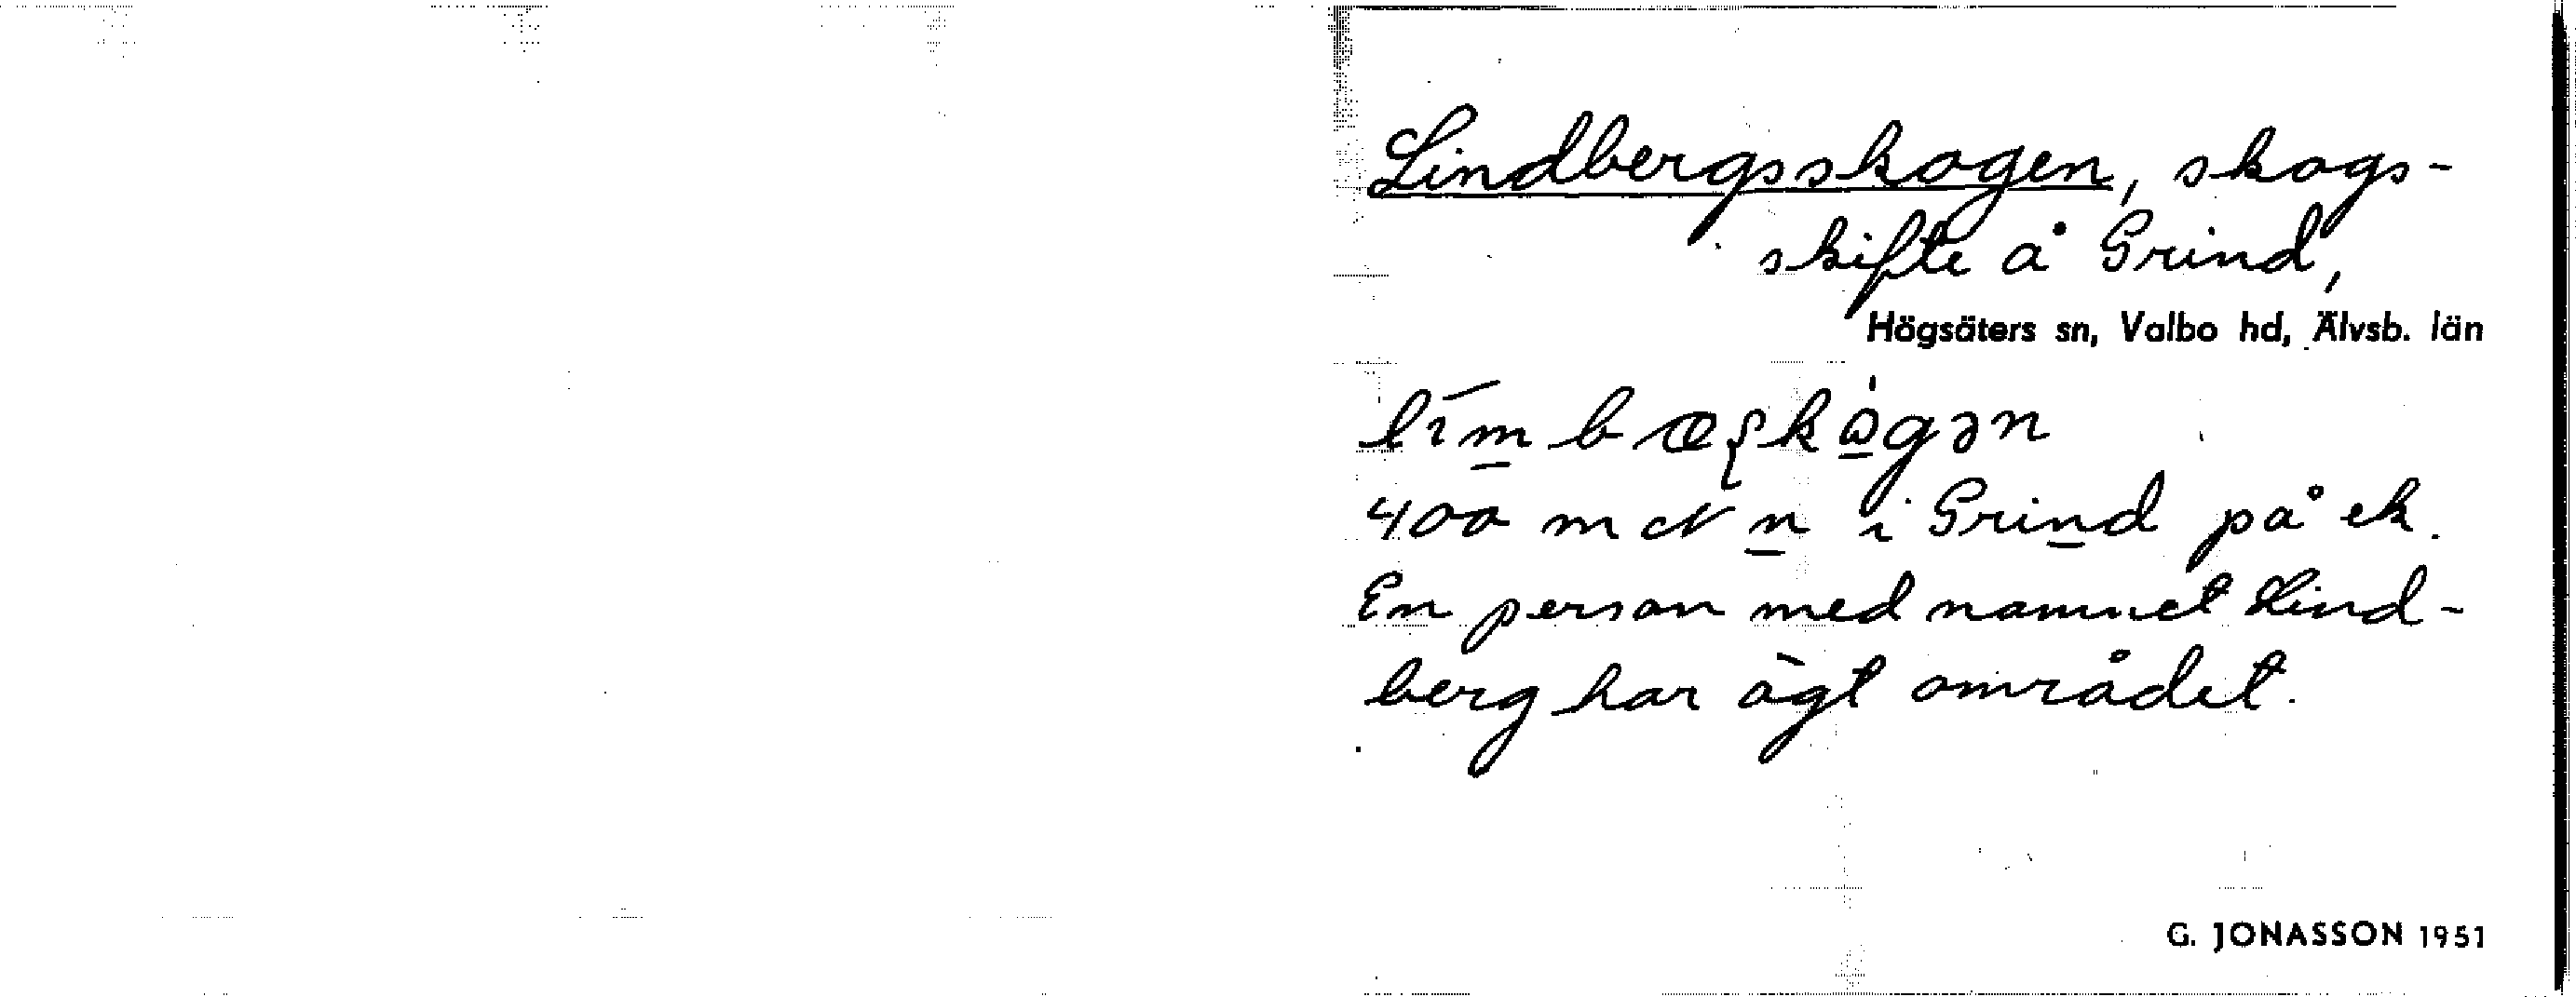 Lindbergsskogen, skogs-
skifte å Grind,
Högsäters sn, Valbo hd, Älvsb. län
400 m N n i Grind på ek.
En person med namnet Lind-
berg har ägt området.
G. JONASSON 1951